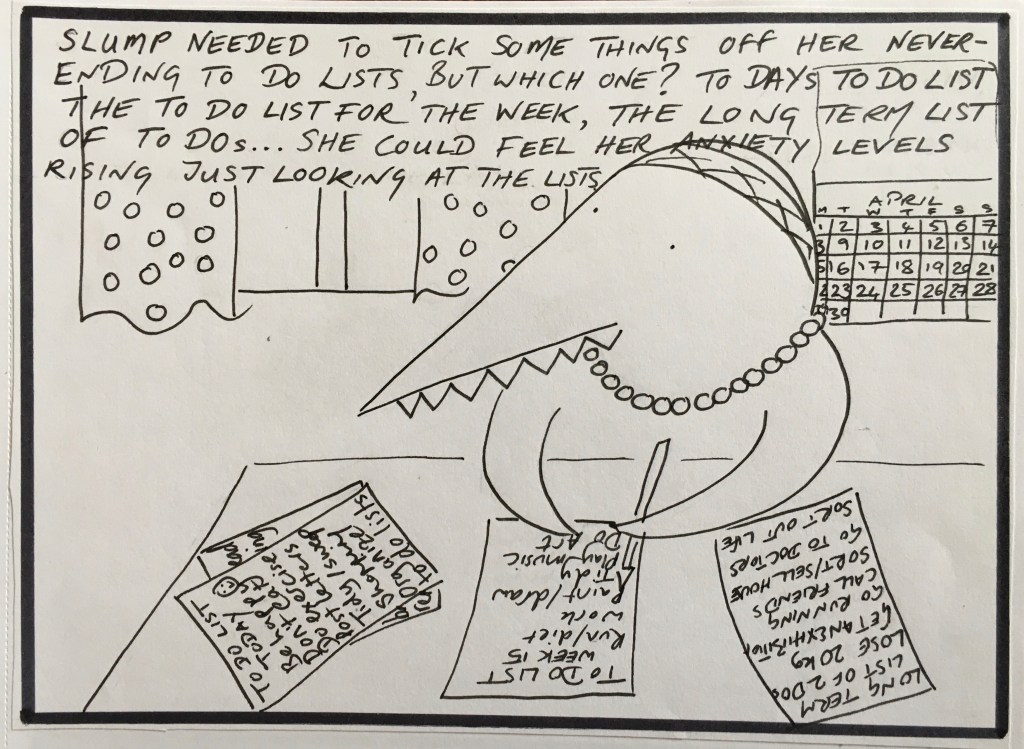 SLUMP NEEDED TO TICK SOME THINGS OFF HER NEVER-
ENDING TO DO LISTS, BUT WHICH ONE? TO DAYS TO DO LIST
THE TO DO LIST FOR THE WEEK, THE LONG TERM LIST
OF TO DOs... SHE COULD FEEL HER ANXIETY LEVELS
RISING JUST LOOKING AT THE LISTS
APRIL
M T W T F S S
1 2 3 4 5 6 7
8 9 10 11 12 13 14
5 16 17 18 19 20 21
2 23 24 25 26 27 28
29 30
TO DO LIST
TODAY
Be happy
Don't eat
Do exercise
Post letters
Tidy/
Shopping
reorganize
to do lists
TO DO LIST
WEEK 15
Run/diet
work
Paint/draw
Tidy
Play music
Do Art
LONG TERM
LIST OF 2 DOs
LOSE 20 kg
GET AN EXHIBITION
GO RUNNING
CALL FRIENDS
SORT/SELL HOUSE
GO TO DOCTORS
SORT OUT LIFE